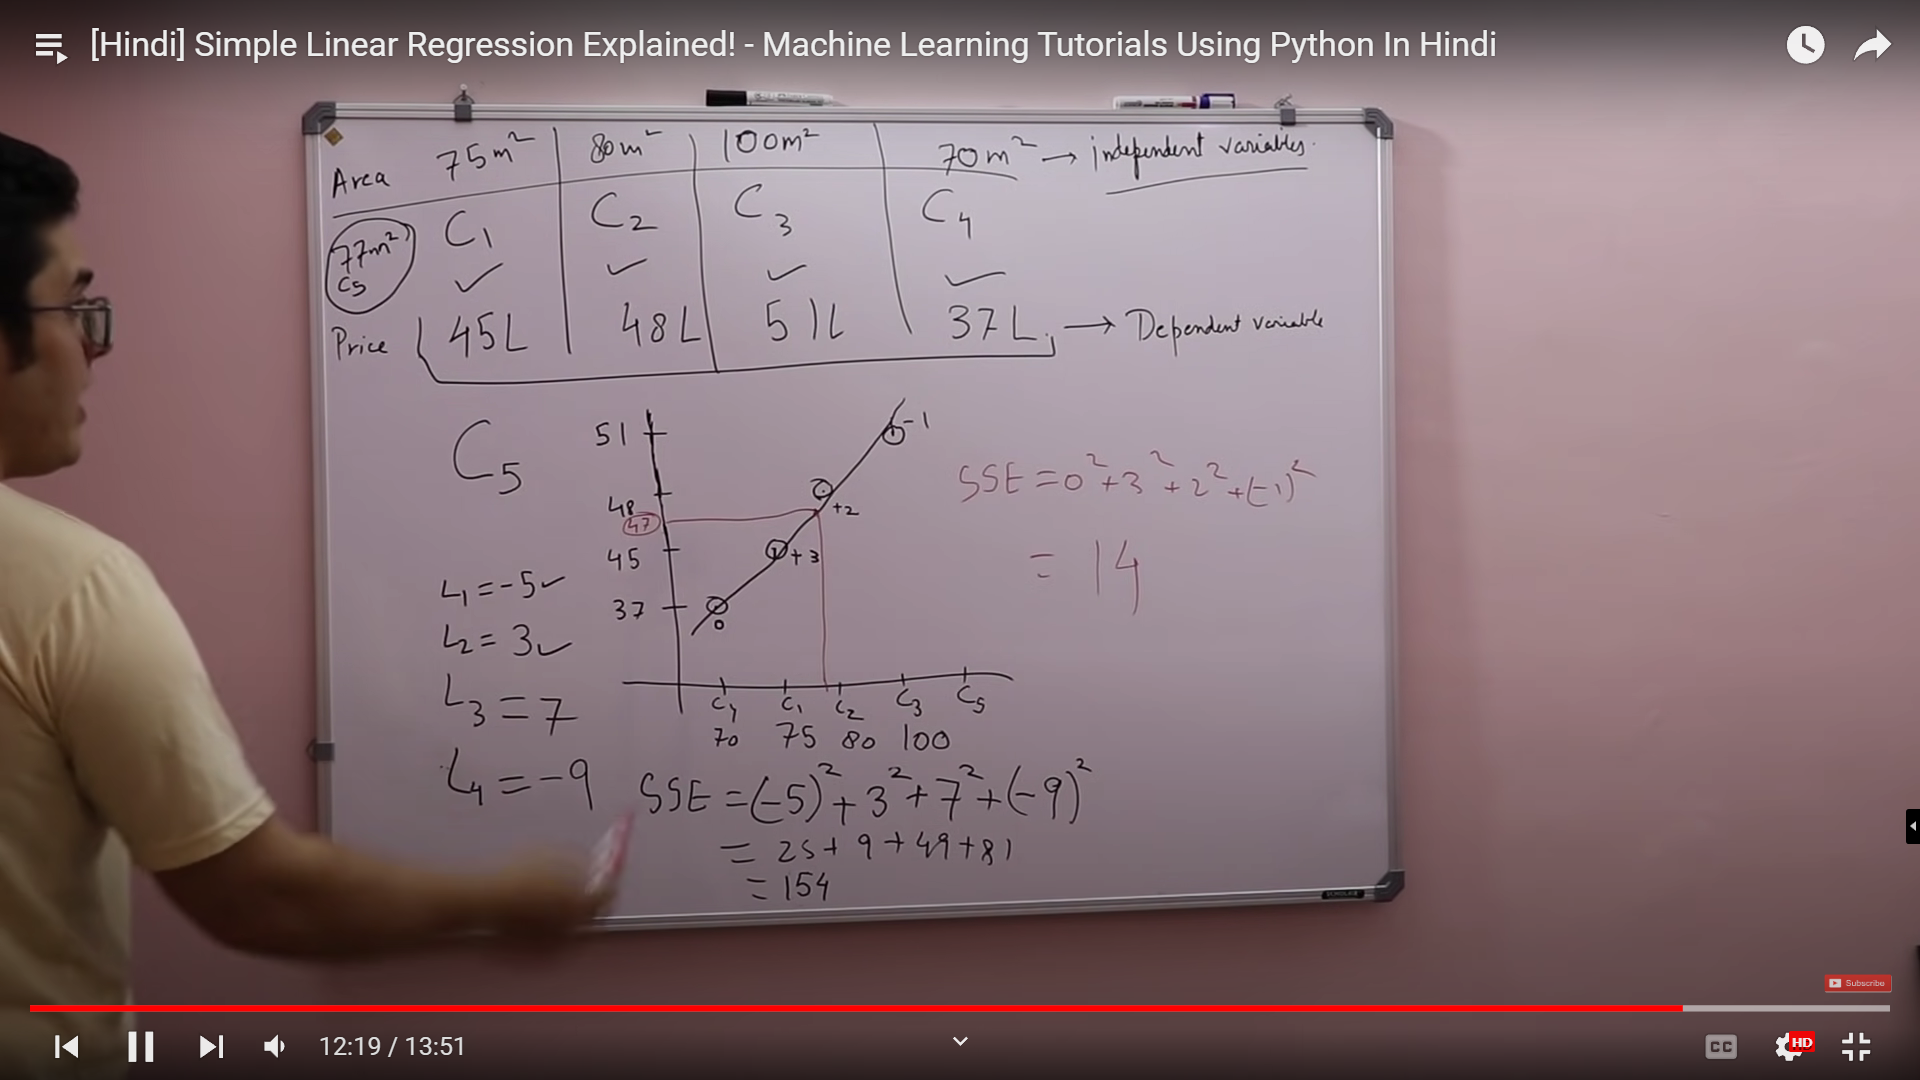 [Hindi] Simple Linear Regression Explained! - Machine Learning Tutorials Using Python In Hindi
Area 75m² 80m² 100m² 70m² → independent variables.
77m²
C5
C1 C2 C3 C4
✓ ✓ ✓ ✓
Price 45L 48L 51L 37L → Dependent variable
C5
51
48
47
45
37
-1
+2
+3
0
C4 C1 C2 C3 C5
70 75 80 100
SSE = 0² + 3² + 2² + (-1)²
= 14
L1 = -5 ✓
L2 = 3 ✓
L3 = 7
L4 = -9
SSE = (-5)² + 3² + 7² + (-9)²
= 25 + 9 + 49 + 81
= 154
Subscribe
12:19 / 13:51
CC
HD